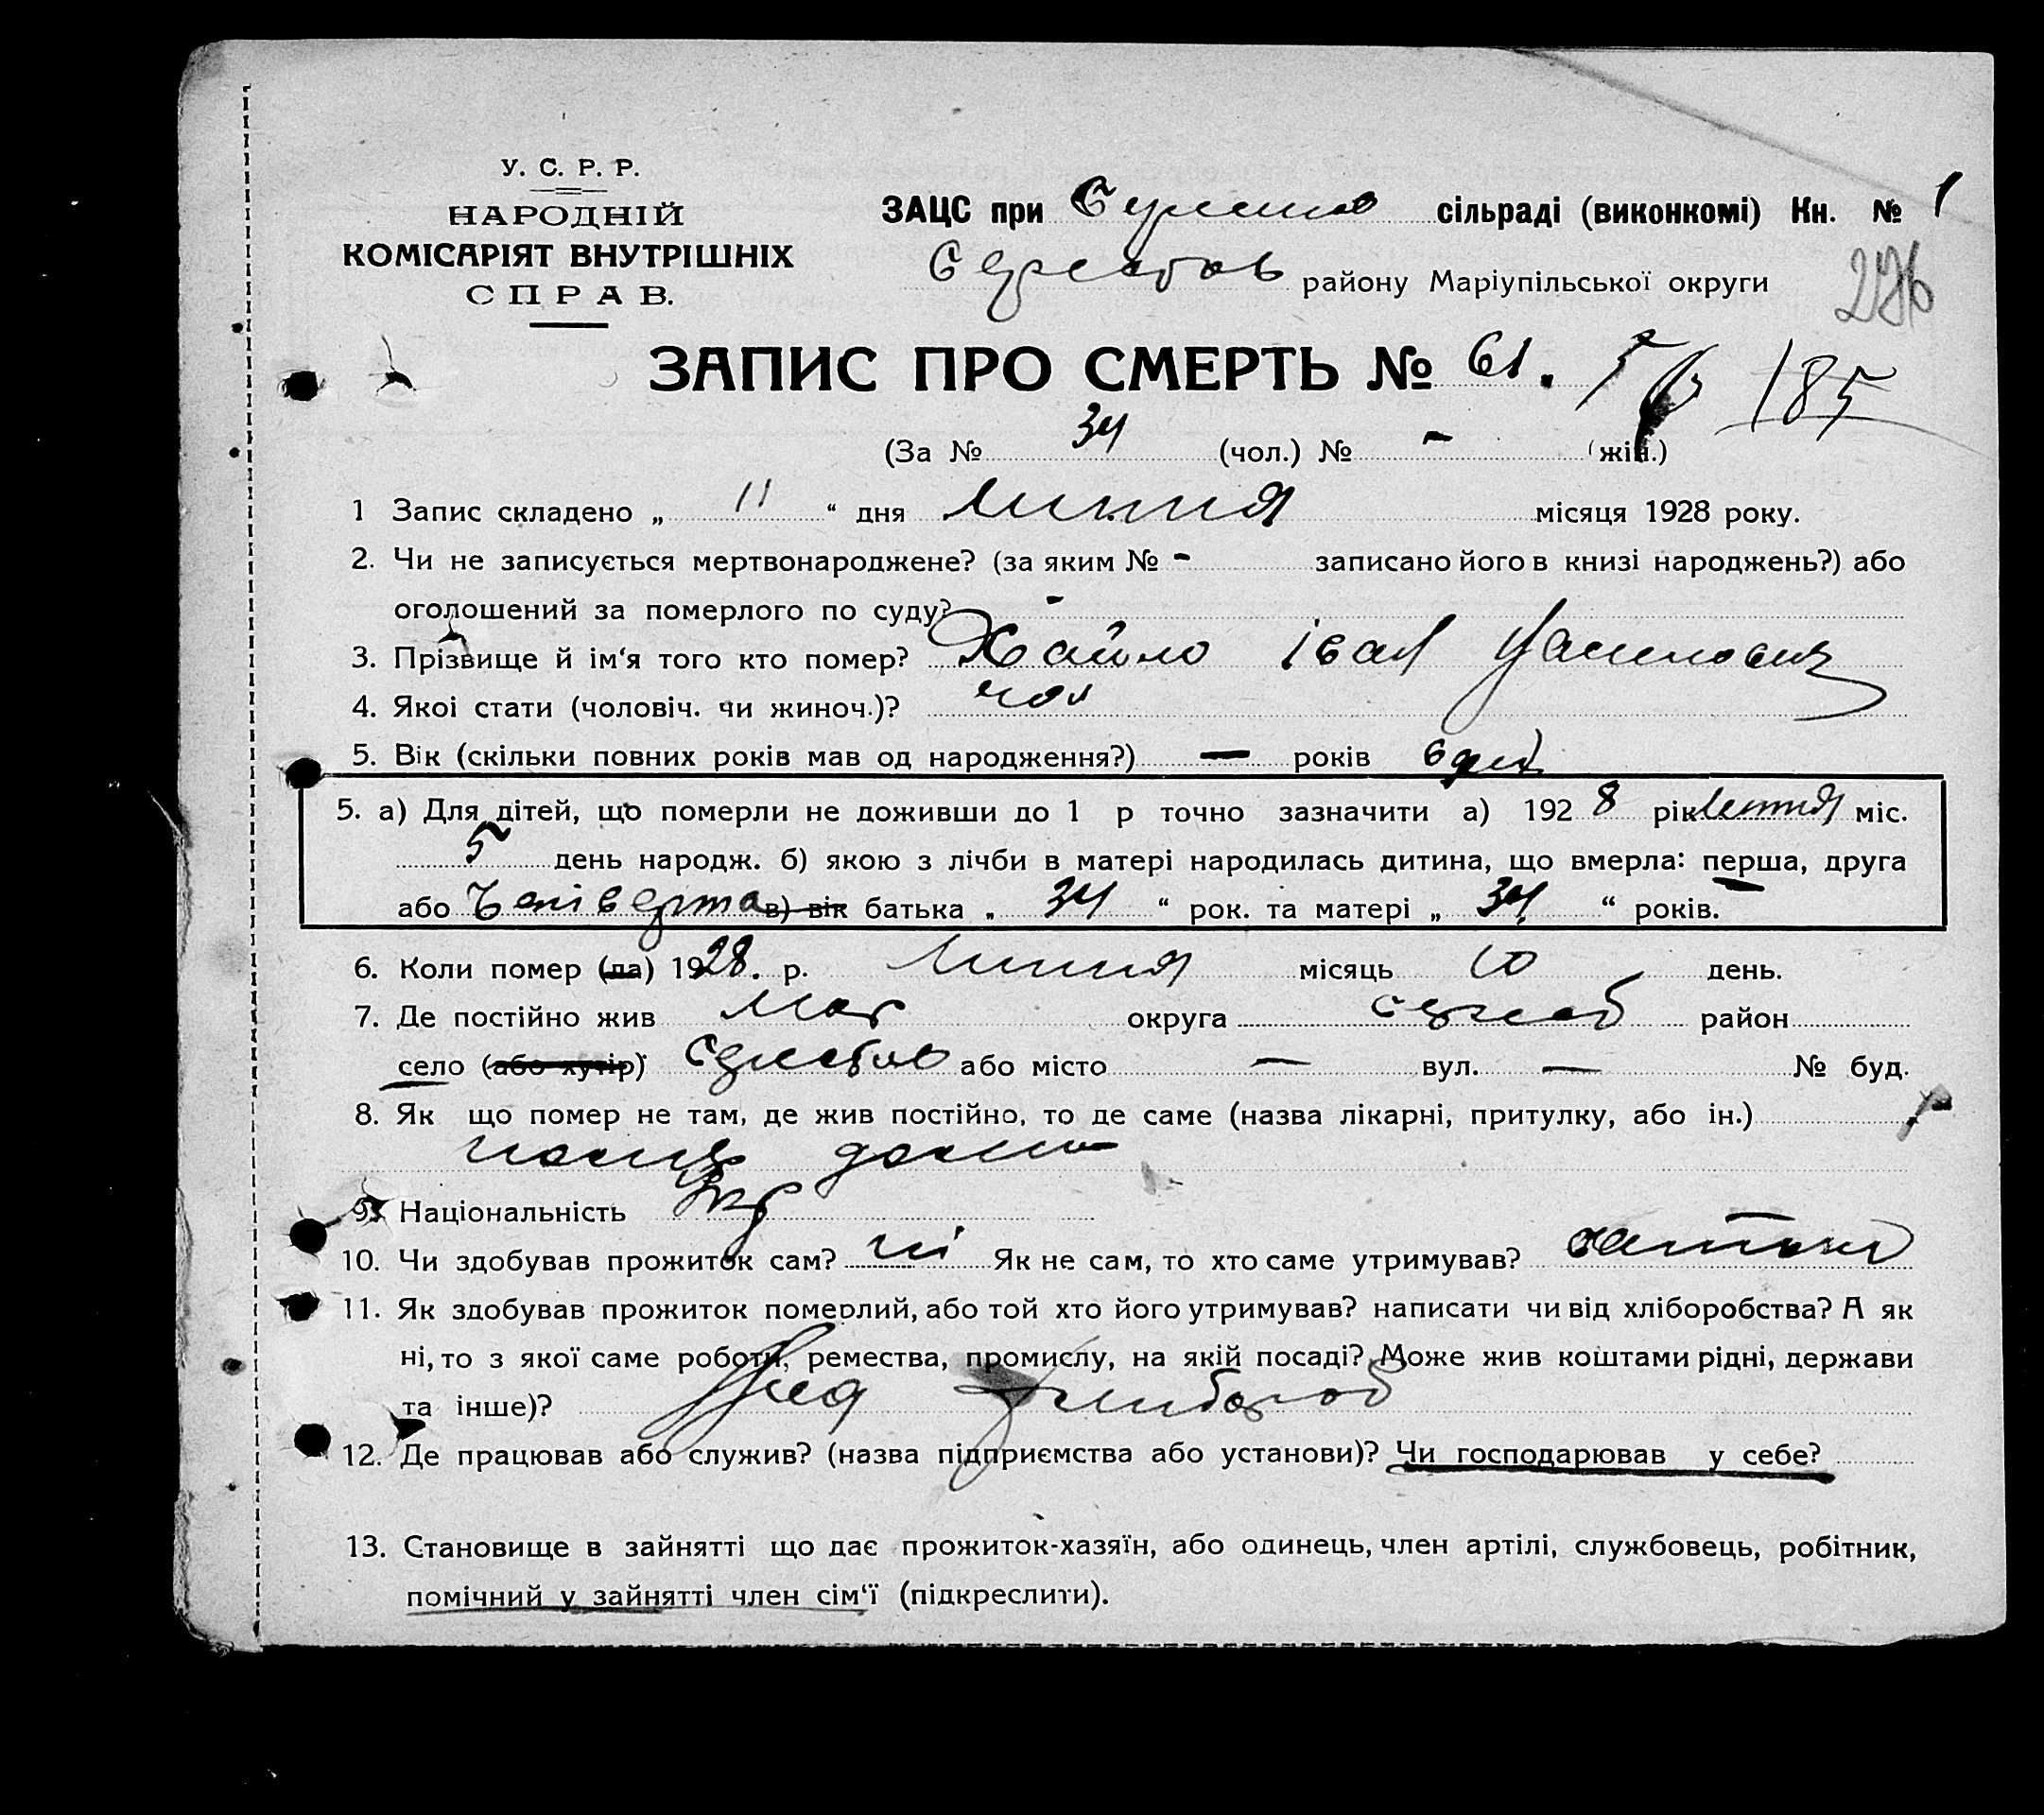 У. С. Р. Р.
НАРОДНІЙ
КОМІСАРІЯТ ВНУТРІШНІХ
СПРАВ.
ЗАЦС при сільраді (виконкомі) Кн. № 1
району Маріупільської округи
276
ЗАПИС ПРО СМЕРТЬ № 61. 185
(За № 34 (чол.) № - (жін.)
1 Запис складено „ 11 “ дня липня місяця 1928 року.
2. Чи не записується мертвонароджене? (за яким № - записано його в книзі народжень?) або
оголошений за померлого по суду? -
3. Прізвище й ім‘я того кто помер? Хайло Іван
4. Якоі стати (чоловіч. чи жиноч.)? чол
5. Вік (скільки повних років мав од народження?) — років 6 дней
5. а) Для дітей, що померли не доживши до 1 р точно зазначити а) 1928 рік липня міс.
5 день народж. б) якою з лічби в матері народилась дитина, що вмерла: перша, друга
або четверта в) вік батька „ 34 “ рок. та матері „ 34 “ років.
6. Коли помер (ла) 1928. р. липня місяць 10 день.
7. Де постійно жив Мар округа район
село (або хутір) або місто — вул. — № буд.
8. Як що помер не там, де жив постійно, то де саме (назва лікарні, притулку, або ін.)
дома
9. Національність Укр
10. Чи здобував прожиток сам? ні Як не сам, то хто саме утримував? батьки
11. Як здобував прожиток померлий, або той хто його утримував? написати чи від хліборобства? А як
ні, то з якої саме роботи, ремества, промислу, на якій посаді? Може жив коштами рідні, держави
та інше)? хлібороб
12. Де працював або служив? (назва підприємства або установи)? Чи господарював у себе?
13. Становище в зайнятті що дає прожиток-хазяїн, або одинець, член артілі, службовець, робітник,
помічний у зайнятті член сім‘ї (підкреслити).